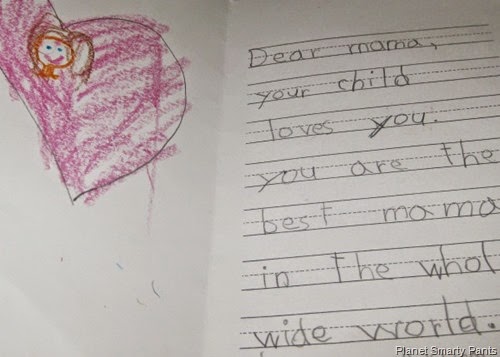 Dear mama,
your child
loves you.
you are the
best mama
in the whol
wide world.
Planet Smarty Pants